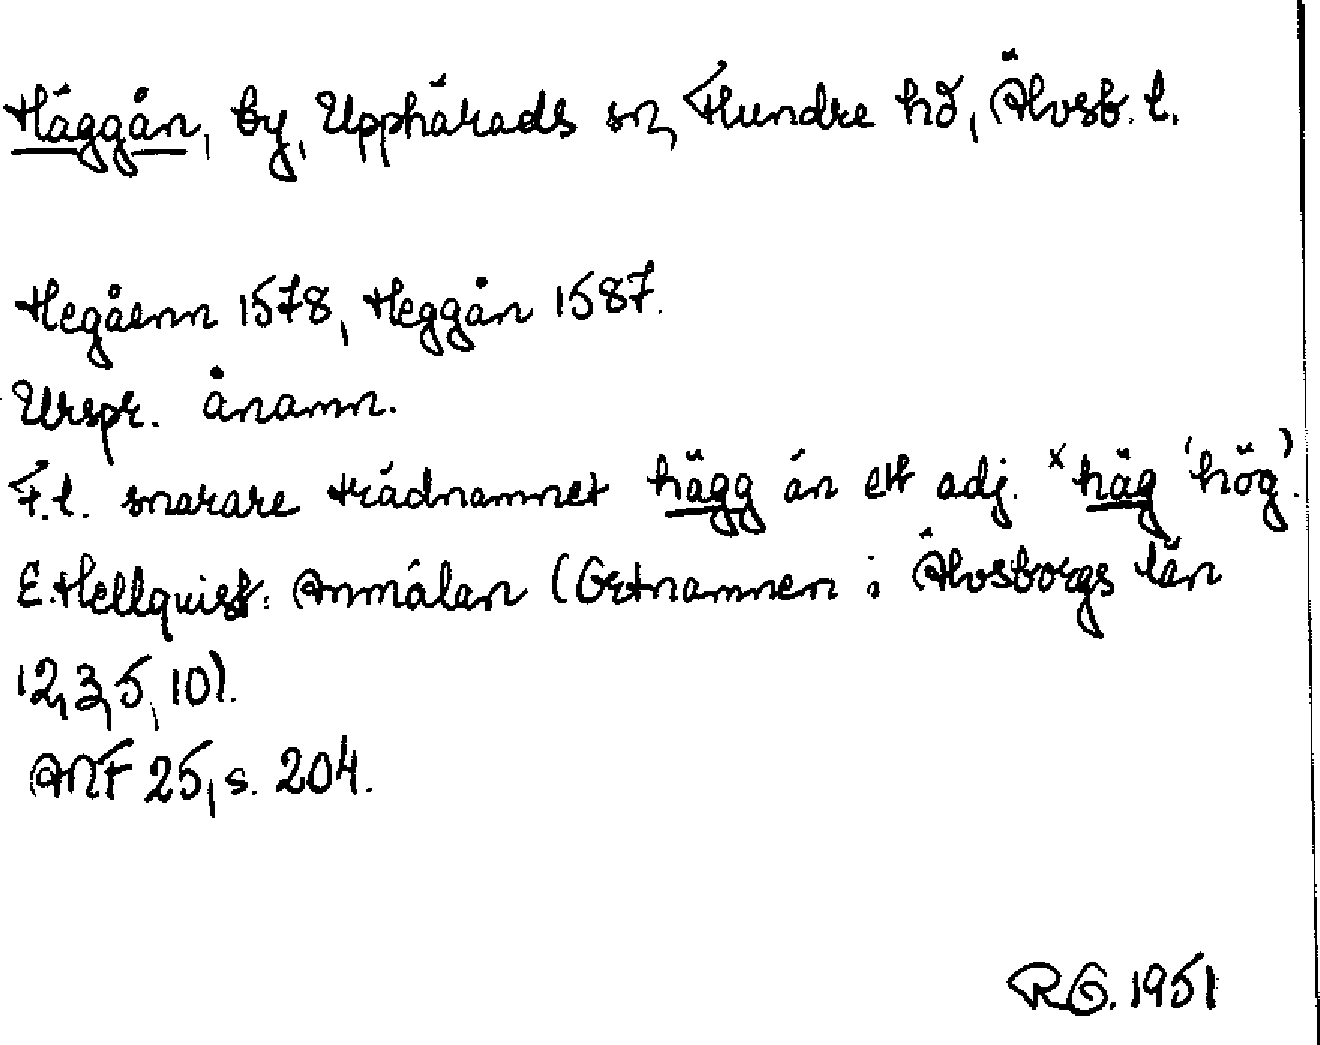 Häggån, by, Upphärads sn, Flundre hd, Älvsb. l.
Hegåenn 1578, Heggån 1587.
Urspr. ånamn.
F.l. snarare trädnamnet hägg än ett adj. *häg 'hög'.
E. Hellquist: Anmälan (Ortnamnen i Älvsborgs län
12, 3, 5, 10).
ANF 25, s. 204.
R.G. 1951